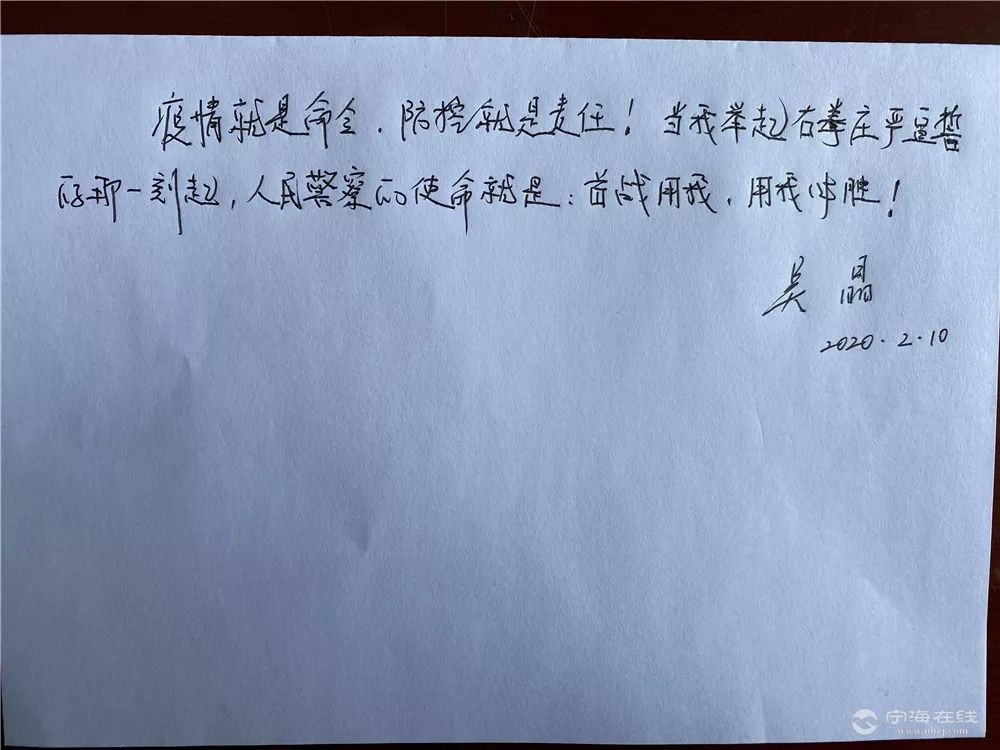 疫情就是命令,防控就是责任!当我举起右拳庄严宣誓
的那一刻起,人民警察的使命就是:首战用我,用我必胜!
吴晶
2020.2.10
宁海在线
www.nhzj.com